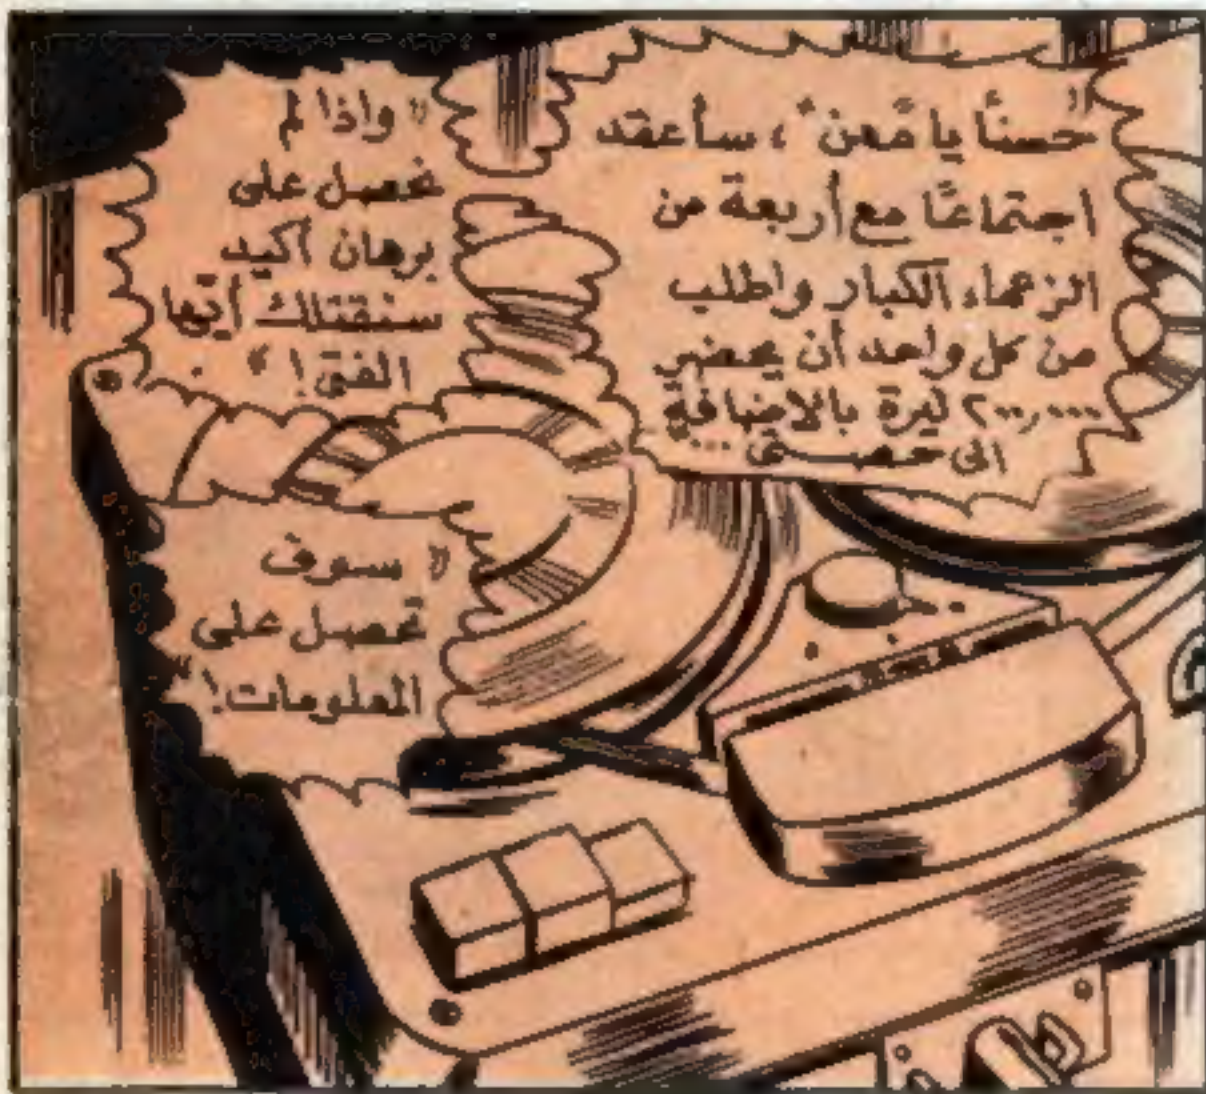 "حسنًا يا "معن"، سأعقد
اجتماعًا مع أربعة من
الزعماء الكبار واطلب
من كل واحد أن يحضر
٢٠٠,٠٠٠ ليرة بالاضافة
الى حصتي ...
"واذا لم
نحصل على
برهان أكيد
سنقتلك أيّها
الفتى!"
"سوف
تحصل على
المعلومات!"